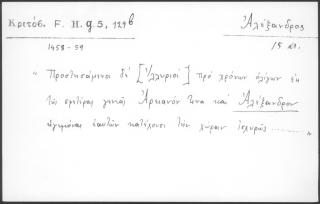 Κριτόβ. F. H. g. 5, 129b
Ἀλέξανδρος
1458-59
15 αι.
" Προστησάμενοι δὲ [Ἰλλυριοὶ] πρὸ χρόνων ὀλίγων ἐκ
τῶν σφετέρας γενεᾶς Ἀριανόν τινα καὶ Ἀλέξανδρον
ἡγεμόνας ἑαυτῶν κατέχουσι τὴν χώραν ἰσχυρῶς ........... "